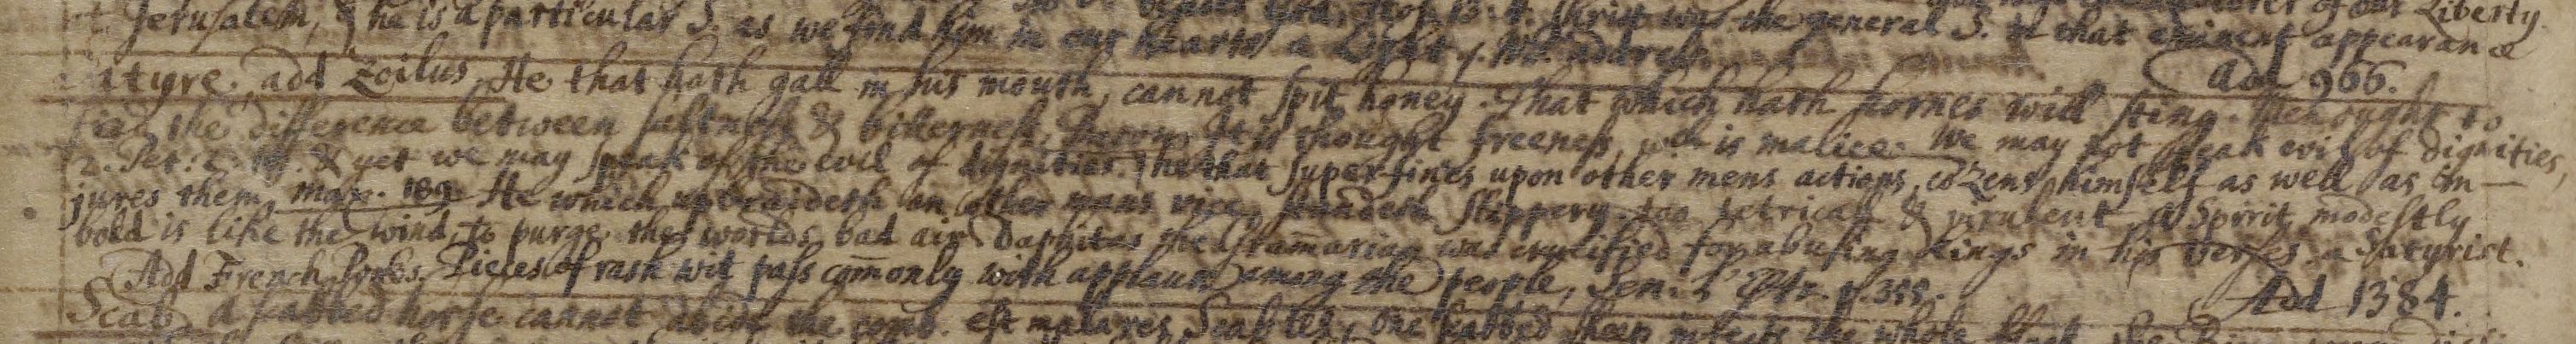 Jerusalem, & he is a particular S. as we find him in our hearts a Light
the general S. that eminent appearance
Satyre, add Zoilus. He that hath gall in his mouth, cannot spit honey. That which hath hornes will sting. Add 966.
the difference between saltness & bitterness. It is thought freeness, wch is malice. We may not speak evil of dignities,
2. Pet: & yet we may speak of the evil of dignities. he that superfines upon other mens actions, cozens himself as well as in-
jures them. Max. 189. He which upbraideth an other mans vice, standeth slippery. too tetricall & virulent. a Spirit modestly
bold is like the wind, to purge the worlds bad air. Daphitas the Gram̄arian was crucified for abusing kings in his verses. a Satyrist.
Add French Jokes. Pieces of rash wit pass com̄only with applaus among the people, Sen. Add 1384.
Scab, a scabbed horse cannot abide the comb. est mala res Scabies, one scabbed sheep infects the whole flock